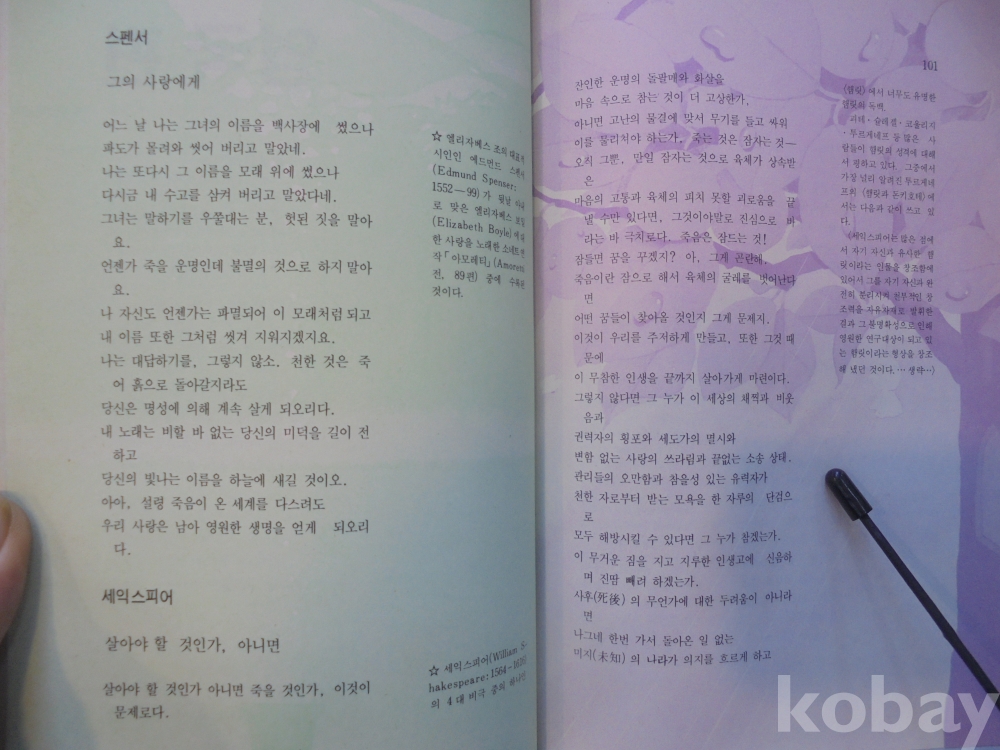 스펜서
그의 사랑에게
어느 날 나는 그녀의 이름을 백사장에 썼으나
파도가 몰려와 씻어 버리고 말았네.
나는 또다시 그 이름을 모래 위에 썼으나
다시금 내 수고를 삼켜 버리고 말았다네.
그녀는 말하기를 우쭐대는 분, 헛된 짓을 말아
요.
언젠가 죽을 운명인데 불멸의 것으로 하지 말아
요.
나 자신도 언젠가는 파멸되어 이 모래처럼 되고
내 이름 또한 그처럼 씻겨 지워지겠지요.
나는 대답하기를, 그렇지 않소. 천한 것은 죽
어 흙으로 돌아갈지라도
당신은 명성에 의해 계속 살게 되오리다.
내 노래는 비할 바 없는 당신의 미덕을 길이 전
하고
당신의 빛나는 이름을 하늘에 새길 것이오.
아아, 설령 죽음이 온 세계를 다스려도
우리 사랑은 남아 영원한 생명을 얻게 되오리
다.
☆ 엘리자베스 조의 대표적
시인인 에드먼드 스펜서
(Edmund Spenser:
1552―99)가 뒷날 아내
로 맞은 엘리자베스 보일
(Elizabeth Boyle)에 대
한 사랑을 노래한 소네트 연
작「아모레티」(Amoretti
전, 89편) 중에 수록된
것이다.
세익스피어
살아야 할 것인가, 아니면
살아야 할 것인가 아니면 죽을 것인가, 이것이
문제로다.
☆ 세익스피어(William S-
hakespeare: 1564-1616)
의 4대 비극 중의 하나인
101
잔인한 운명의 돌팔매와 화살을
마음 속으로 참는 것이 더 고상한가,
아니면 고난의 물결에 맞서 무기를 들고 싸워
이를 물리쳐야 하는가, 죽는 것은 잠자는 것―
오직 그뿐, 만일 잠자는 것으로 육체가 상속받
은
마음의 고통과 육체의 피치 못할 괴로움을 끝
낼 수만 있다면, 그것이야말로 진심으로 바
라는 바 극치로다. 죽음은 잠드는 것!
잠들면 꿈을 꾸겠지? 아, 그게 곤란해.
죽음이란 잠으로 해서 육체의 굴레를 벗어난다
면
어떤 꿈들이 찾아올 것인지 그게 문제지.
이것이 우리를 주저하게 만들고, 또한 그것 때
문에
이 무참한 인생을 끝까지 살아가게 마련이다.
그렇지 않다면 그 누가 이 세상의 채찍과 비웃
음과
권력자의 횡포와 세도가의 멸시와
변함 없는 사랑의 쓰라림과 끝없는 소송 상태.
관리들의 오만함과 참을성 있는 유력자가
천한 자로부터 받는 모욕을 한 자루의 단검으
로
모두 해방시킬 수 있다면 그 누가 참겠는가.
이 무거운 짐을 지고 지루한 인생고에 신음하
며 진땀 빼려 하겠는가.
사후(死後)의 무언가에 대한 두려움이 아니라
면
나그네 한번 가서 돌아온 일 없는
미지(未知)의 나라가 의지를 흐르게 하고
〈햄릿〉에서 너무도 유명한
햄릿의 독백.
괴테·슐레겔·코울리지
·투르게네프 등 많은 사
람들이 햄릿의 성격에 대해
서 평하고 있다. 그중에서
가장 널리 알려진 투르게네
프의 〈햄릿과 돈키호테〉에
서는 다음과 같이 쓰고 있
다.
〈세익스피어는 많은 점에
서 자기 자신과 유사한 햄
릿이라는 인물을 창조함에
있어서 그를 자기 자신과 완
전히 분리시켜 천부적인 창
조력을 자유자재로 발휘한
결과 그 불명확성으로 인해
영원한 연구대상이 되고 있
는 햄릿이라는 형상을 창조
해 냈던 것이다.…생략…〉
kobay